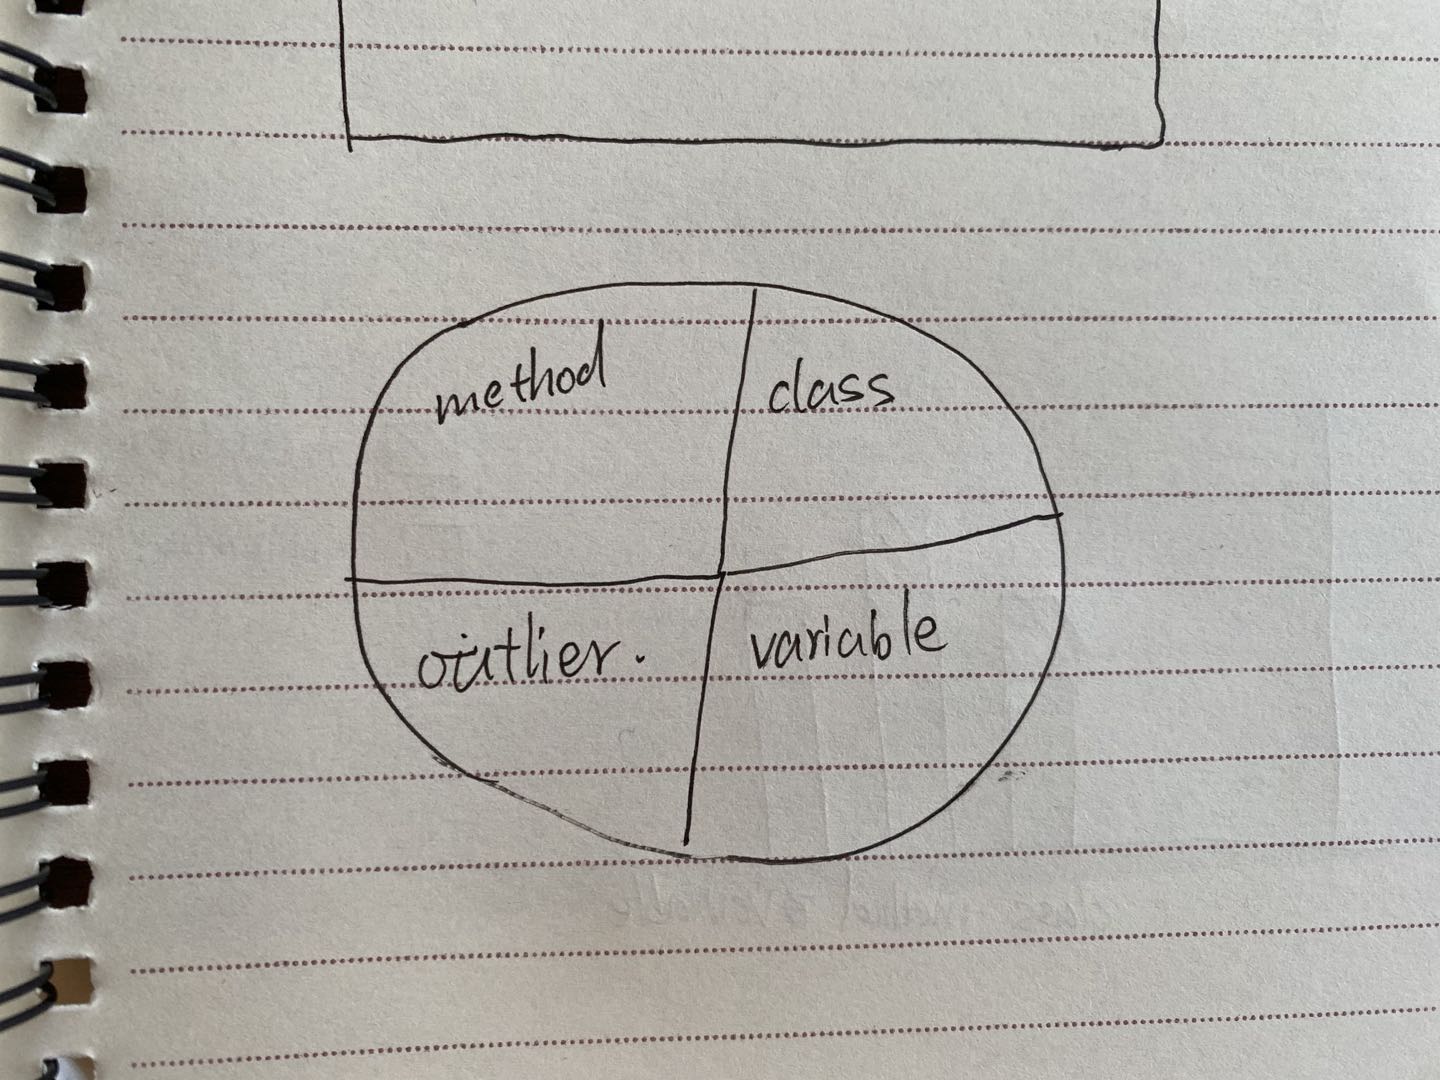 method
class
outlier.
variable